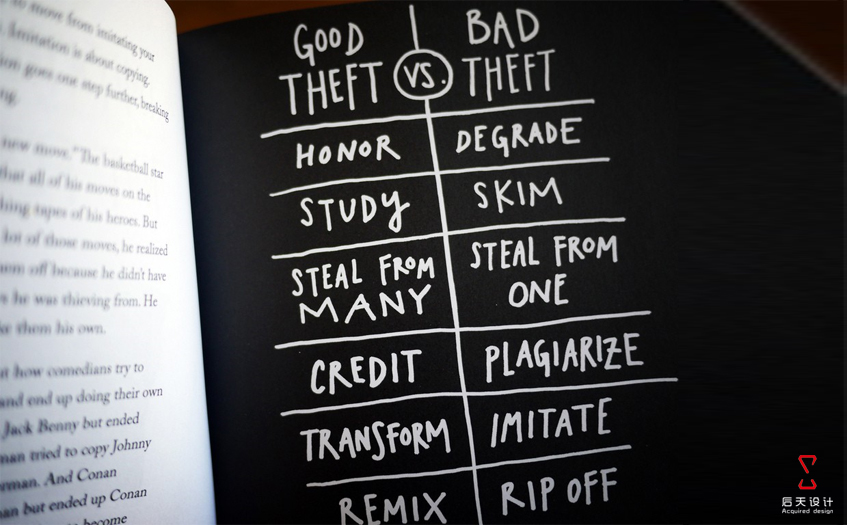 to move from imitating your
. Imitation is about copying.
ion goes one step further, breaking
ng.
new move." The basketball star
that all of his moves on the
hing tapes of his heroes. But
lot of those moves, he realized
em off because he didn't have
s he was thieving from. He
ke them his own.
t how comedians try to
and end up doing their own
Jack Benny but ended
man tried to copy Johnny
rman. And Conan
an but ended up Conan
become
GOOD
THEFT
VS.
BAD
THEFT
HONOR
DEGRADE
STUDY
SKIM
STEAL FROM
MANY
STEAL FROM
ONE
CREDIT
PLAGIARIZE
TRANSFORM
IMITATE
REMIX
RIP OFF
后天设计
Acquired design